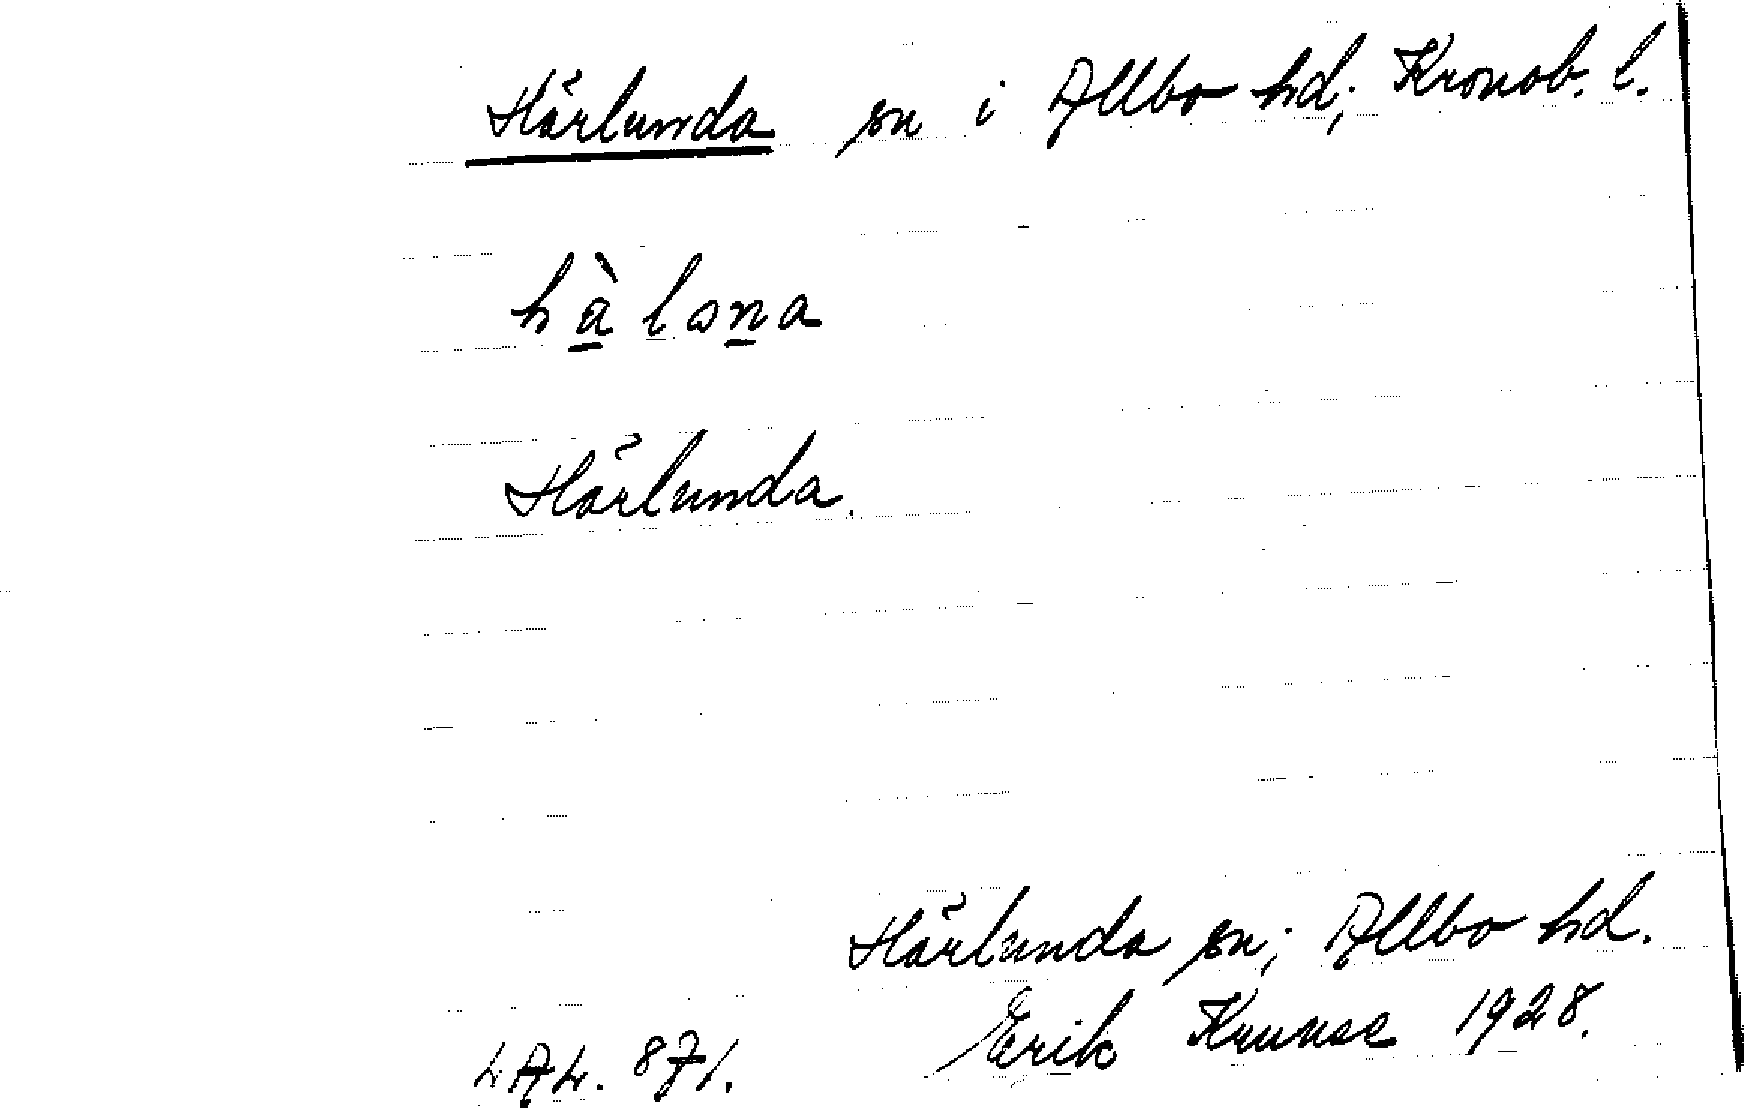 Härlunda sn i Allbo hd; Kronob. l.
hàlona
Härlunda.
Härlunda sn; Allbo hd.
Erik Kruuse 1928.
LAL. 871.